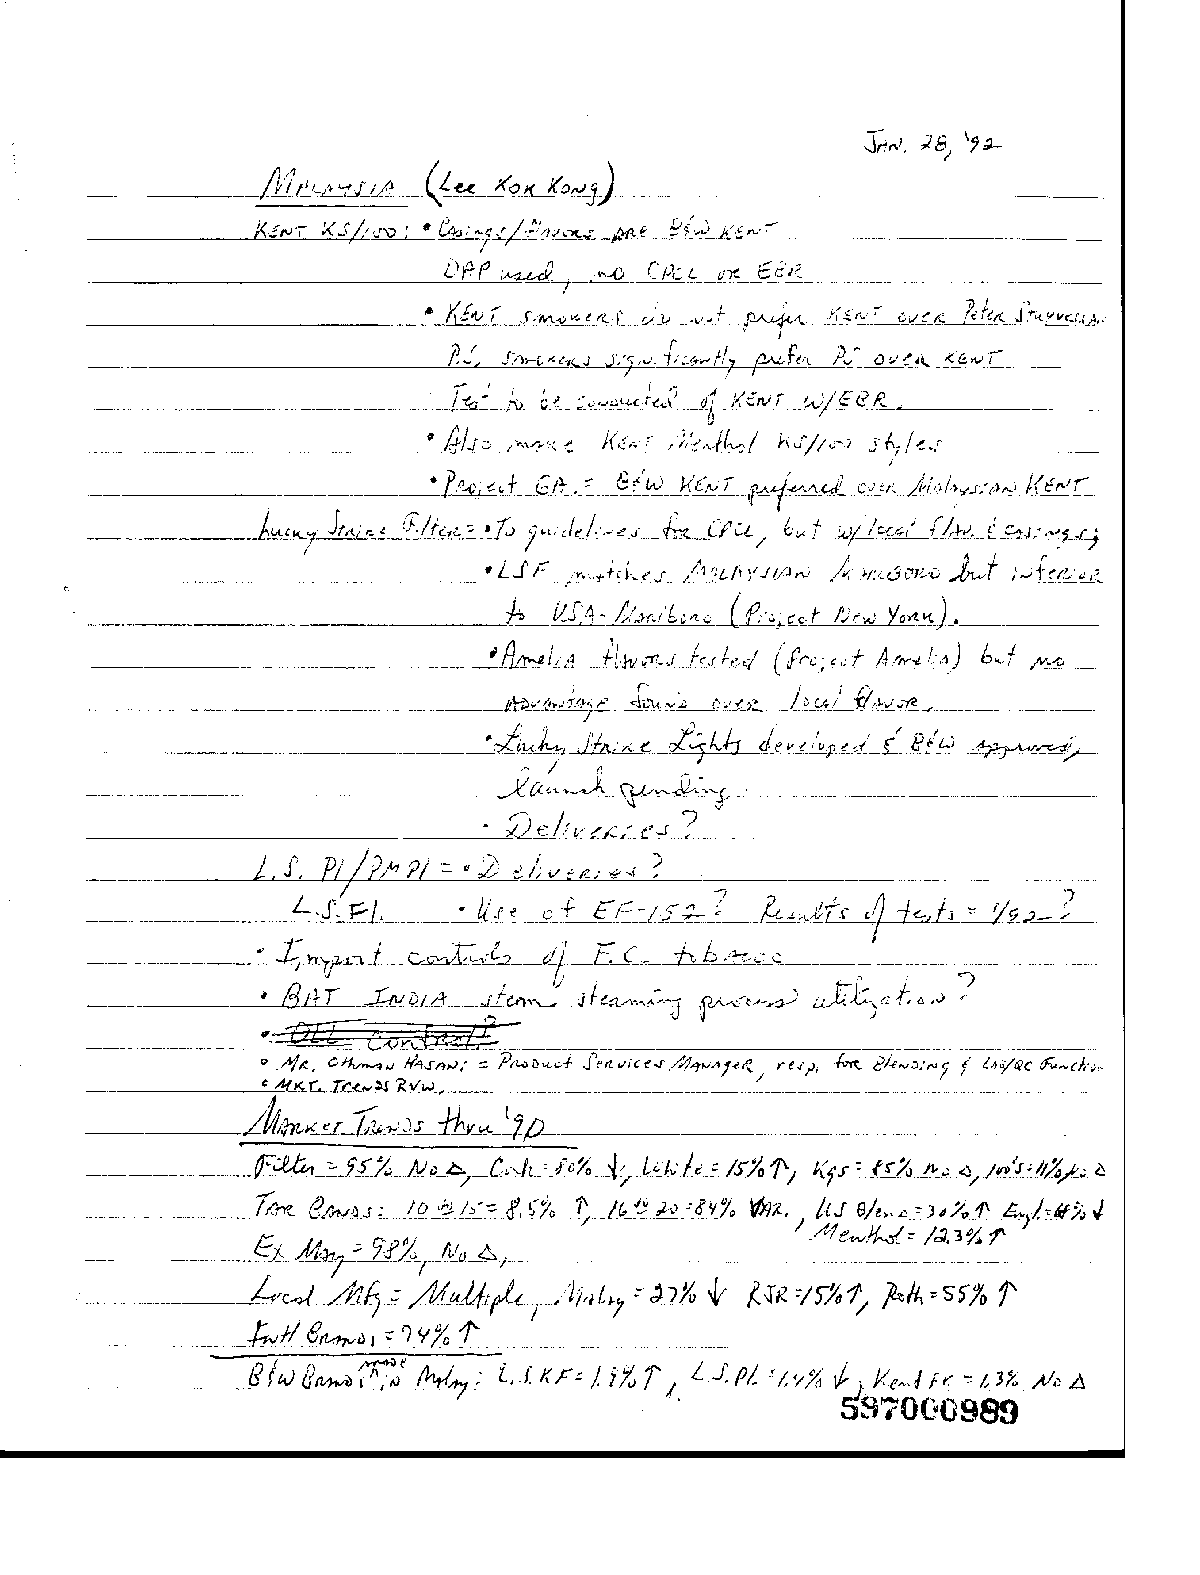 JAN. 28, '92
MALAYSIA (Lee KOK KONG)
KENT KS/100: • Casings/Flavors are B&W KENT
DAP used, no CPCL or EBR
• KENT smokers do not prefer KENT over Peter Stuyvesan
P.S. smokers significantly prefer PS over KENT
Test to be conducted of KENT w/EBR.
• Also make KENT Menthol KS/100 styles
• Project GA. = B&W KENT preferred over Malaysian KENT
Lucky Strike Filter = • To guidelines for CPCL, but w/local flav. & casings;
• LSF matches MALAYSIAN MARLBORO but inferior
to USA-Marlboro (Project New York).
• Amelia flavors tested (Project Amelia) but no
advantage found over local flavor.
• Lucky Strike Lights developed & B&W approved,
launch pending
• Deliveries?
L.S. PI/PMPI = • Deliveries?
L.S.FI. • Use of EF-152? Results of tests = 1/92?
• Import controls of F.C. tobacco
• BAT INDIA stem steaming process utilization?
• contract?
• Mr. Othman Hasan: = Product Services Manager, resp. for Blending & Lab/QC Function
• MKT. Trends RVW.
Market Trends thru '90
Filter = 95% No Δ, Cork = 80% ↓, White = 15% ↑, Kgs = 85% No Δ, 100's = 11% No Δ
Tar Bands: 10 to 15 = 8.5% ↑, 16 to 20 = 84% VAR., US Blend = 30% ↑ Engl. = % ↓
Menthol = 12.3% ↑
Ex Mny = 98%, No Δ,
Local Mfg = Multiple, Malsy = 27% ↓ RJR = 15% ↑, Roth = 55% ↑
Intl Brands = 74% ↑
B&W Brands made in Malsy: L.S.KF = 1.9% ↑, L.S.PI. = 1.4% ↓, Kent FK = 1.3% No Δ
597000989